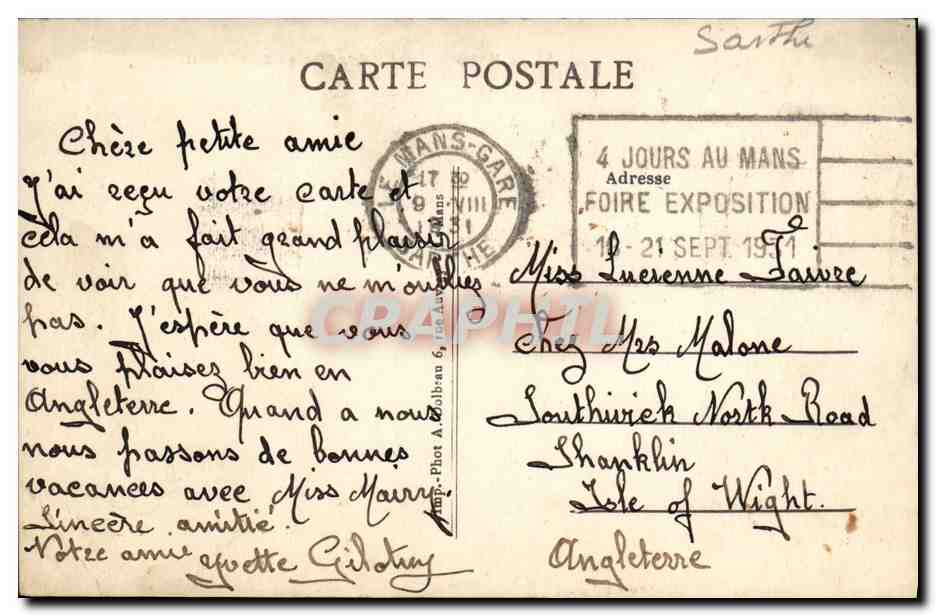 Sarthe
CARTE POSTALE
Chère petite amie
J'ai reçu votre carte et
cela m'a fait grand plaisir
de voir que vous ne m'oubliez
pas. J'espère que vous
vous plaisez bien en
Angleterre. Quand a nous
nous passons de bonnes
vacances avec Miss Mairry.
Sincère amitié.
Votre amie Yvette
LE MANS-GARE
17
9 VIII
SARTHE
4 JOURS AU MANS
Adresse
FOIRE EXPOSITION
21 SEPT. 1931
Miss Lucienne Faivre
Chez Mrs Malone
Southwick North Road
Shanklin
Isle of Wight.
Angleterre
Imp.-Phot A. Dolbeau 6, rue Mans
CRAPHTIL